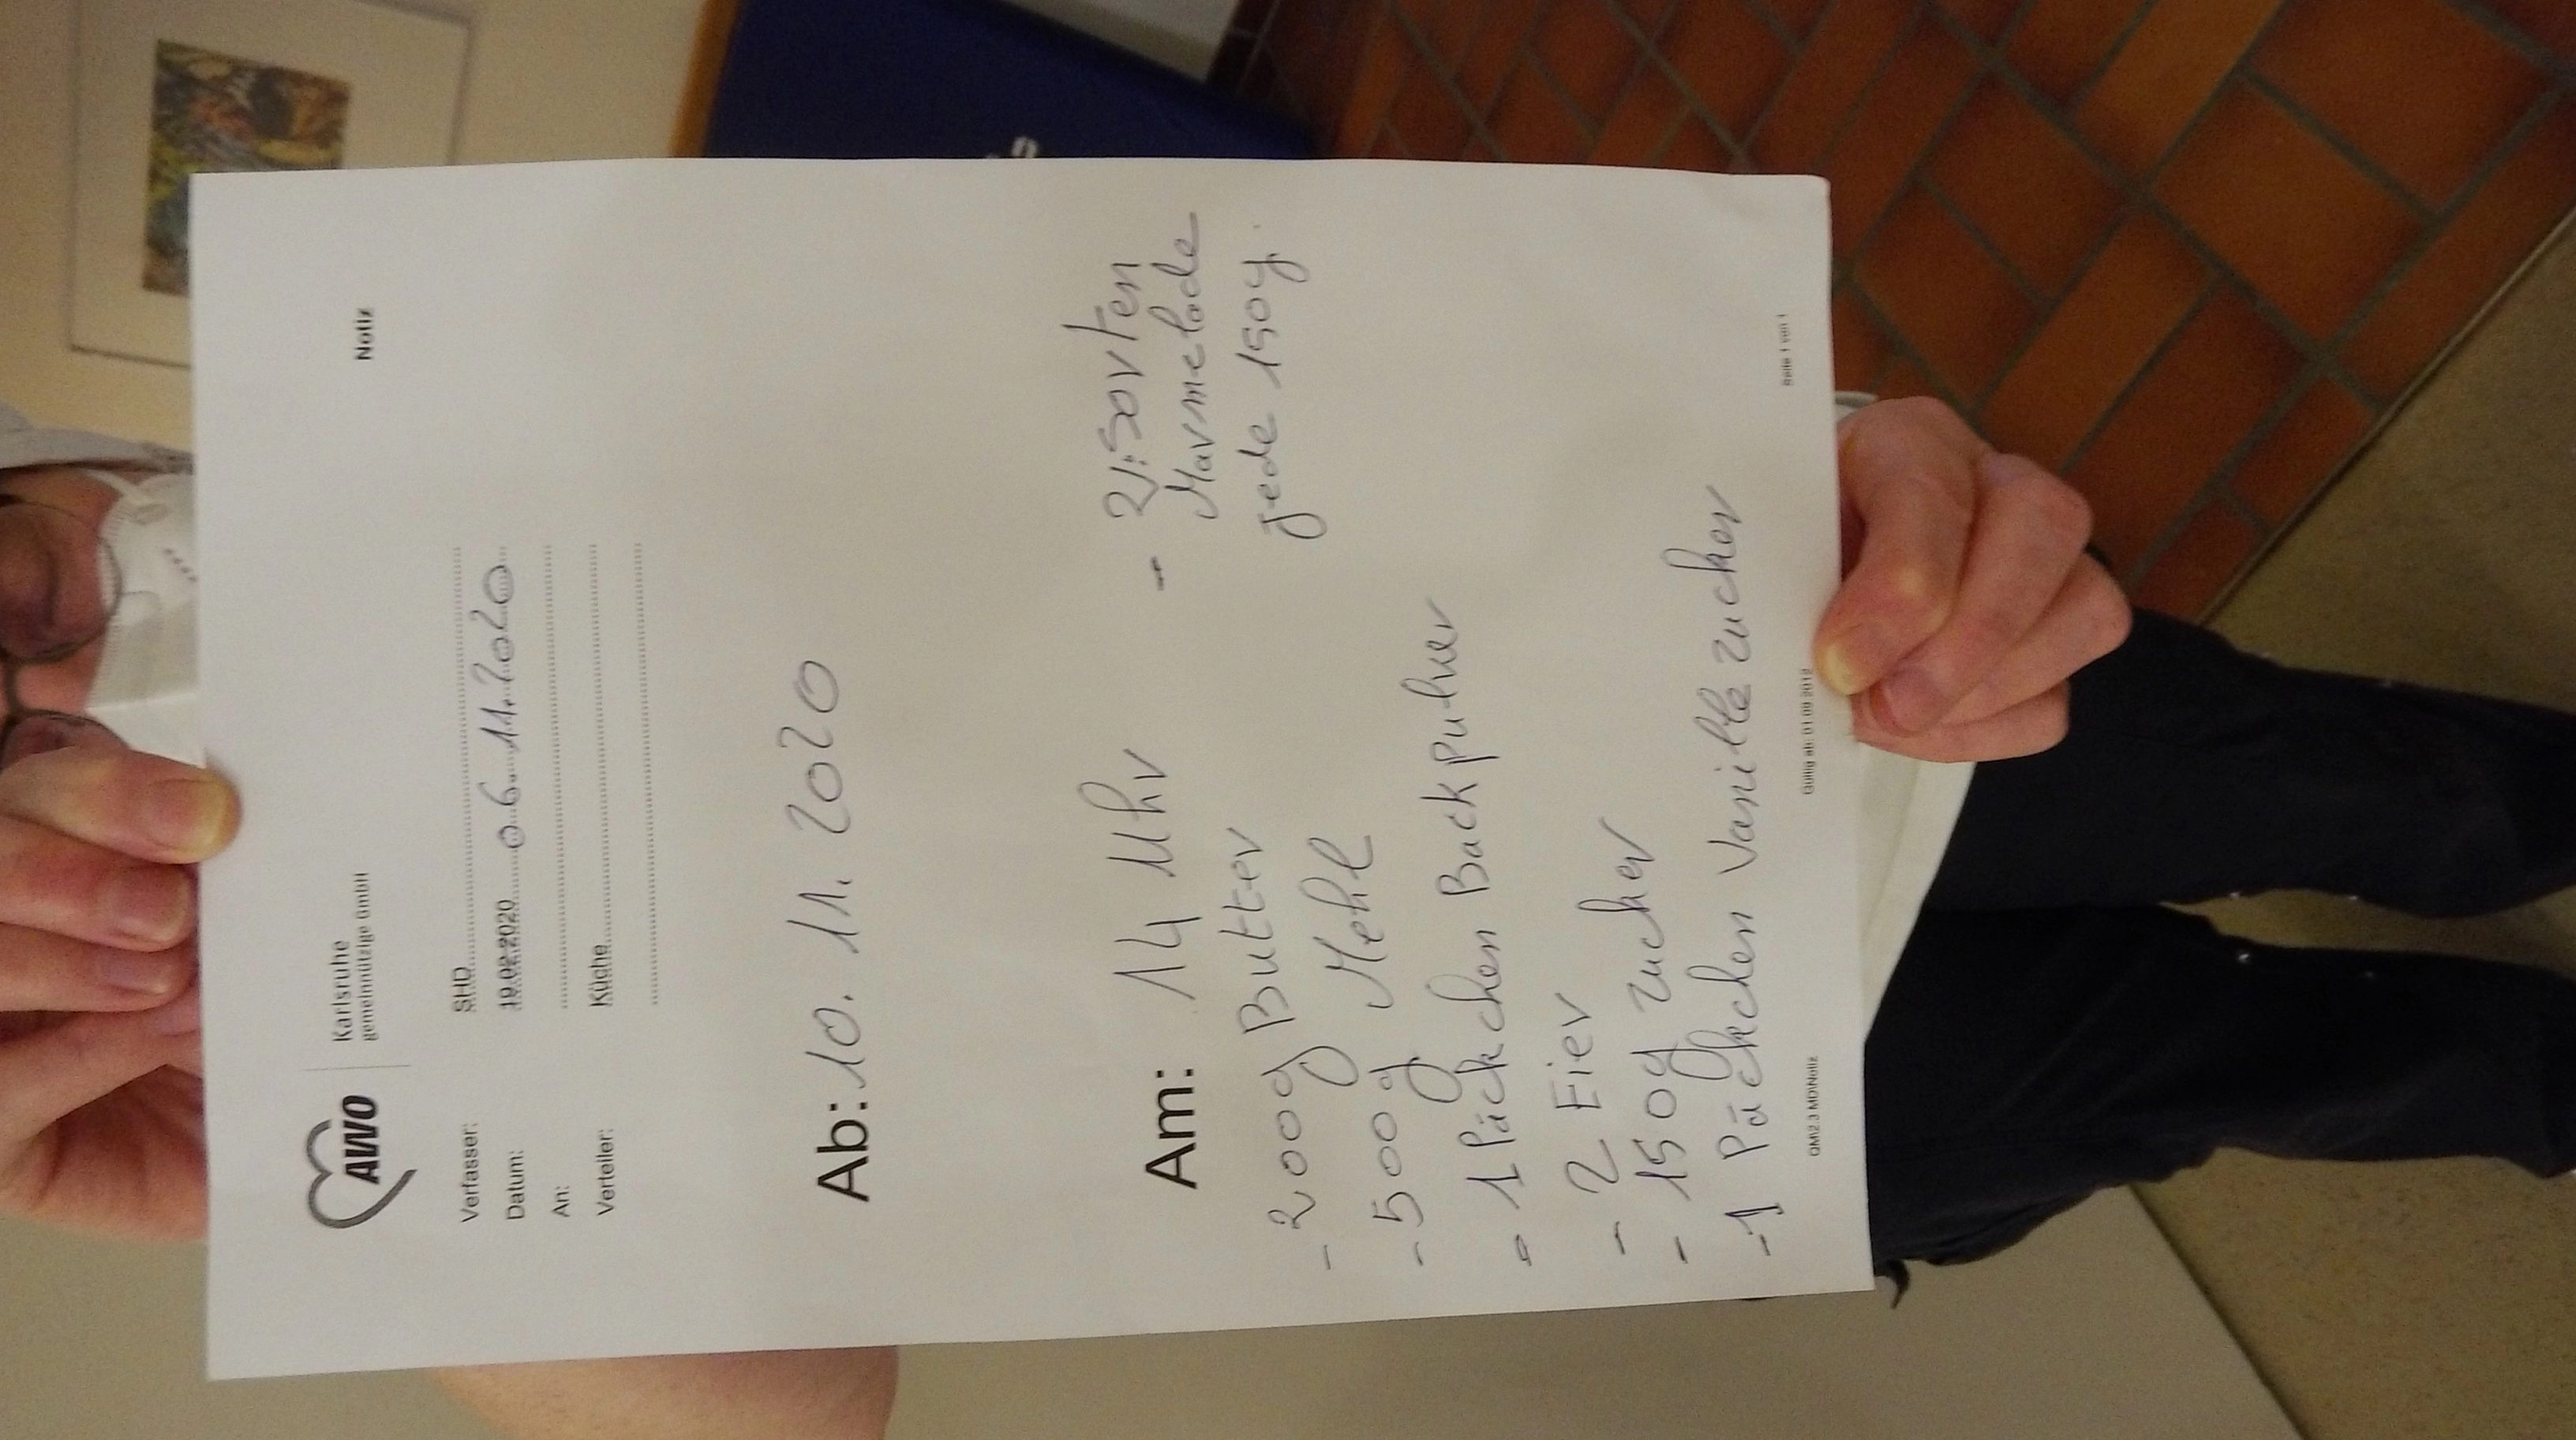 AWO
Karlsruhe
gemeinnützige GmbH
Notiz
Verfasser: SHD
Datum: 19.02.2020 06.11.2020
An:
Verteiler: Küche
Ab: 10. 11. 2020
Am: 14 Uhr
- 200g Butter
- 500g Mehl
- 1 Päckchen Backpulver
- 2 Eier
- 150g Zucker
- 1 Päckchen Vanille Zucker
- 2 Sorten
Marmelade
jede 150g.
QM\2.3 MD\Notiz
Gültig ab: 01.09.2012
Seite 1 von 1